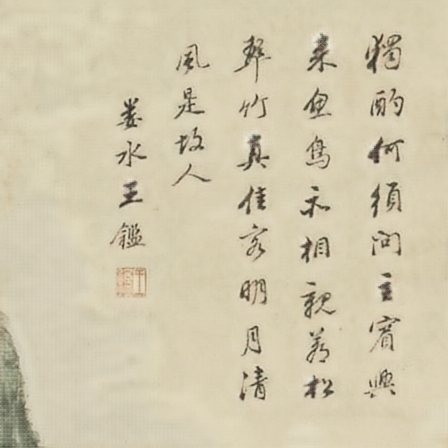 獨酌何須問主賓興
来魚鳥亦相親蒼松
翠竹真佳客明月清
風是故人
婁水王鑑